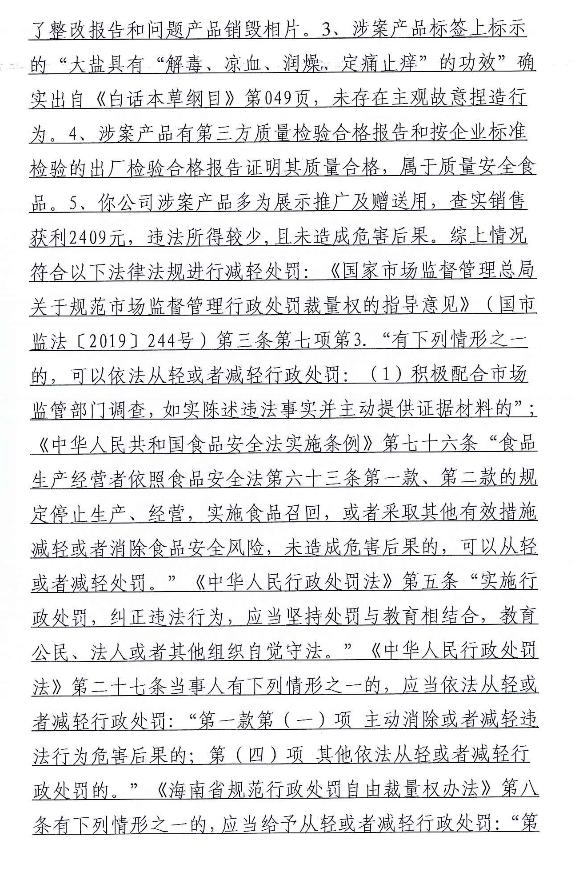 了整改报告和问题产品销毁相片。3、涉案产品标签上标示
的“大盐具有“解毒、凉血、润燥、定痛止痒”的功效”确
实出自《白话本草纲目》第049页，未存在主观故意捏造行
为。4、涉案产品有第三方质量检验合格报告和按企业标准
检验的出厂检验合格报告证明其质量合格，属于质量安全食
品。5、你公司涉案产品多为展示推广及赠送用，查实销售
获利2409元，违法所得较少,且未造成危害后果。综上情况
符合以下法律法规进行减轻处罚：《国家市场监督管理总局
关于规范市场监督管理行政处罚裁量权的指导意见》（国市
监法〔2019〕244号）第三条第七项第3.“有下列情形之一
的，可以依法从轻或者减轻行政处罚：（1）积极配合市场
监管部门调查，如实陈述违法事实并主动提供证据材料的”；
《中华人民共和国食品安全法实施条例》第七十六条“食品
生产经营者依照食品安全法第六十三条第一款、第二款的规
定停止生产、经营，实施食品召回，或者采取其他有效措施
减轻或者消除食品安全风险，未造成危害后果的，可以从轻
或者减轻处罚。”《中华人民行政处罚法》第五条“实施行
政处罚，纠正违法行为，应当坚持处罚与教育相结合，教育
公民、法人或者其他组织自觉守法。”《中华人民行政处罚
法》第二十七条当事人有下列情形之一的，应当依法从轻或
者减轻行政处罚：“第一款第（一）项 主动消除或者减轻违
法行为危害后果的；第（四）项 其他依法从轻或者减轻行
政处罚的。”《海南省规范行政处罚自由裁量权办法》第八
条有下列情形之一的,应当给予从轻或者减轻行政处罚：“第